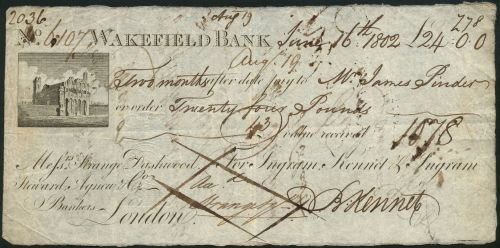 2036 Aug 19 278
No. 6107 WAKEFIELD BANK June 16th 1802 £24-0-0
Aug. 19
Two months after date pay to Mr. James Pinder
or order Twenty four Pounds
value received 1078
Messrs. Strange Dashwood For Ingram, Kennet & Ingram
Steward, Agnew & Co.
Bankers
London R Kennet